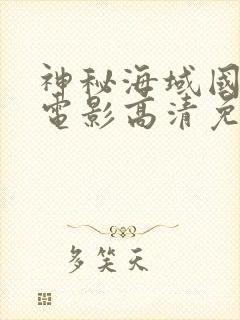 神秘海域國
電影高清免
多笑天